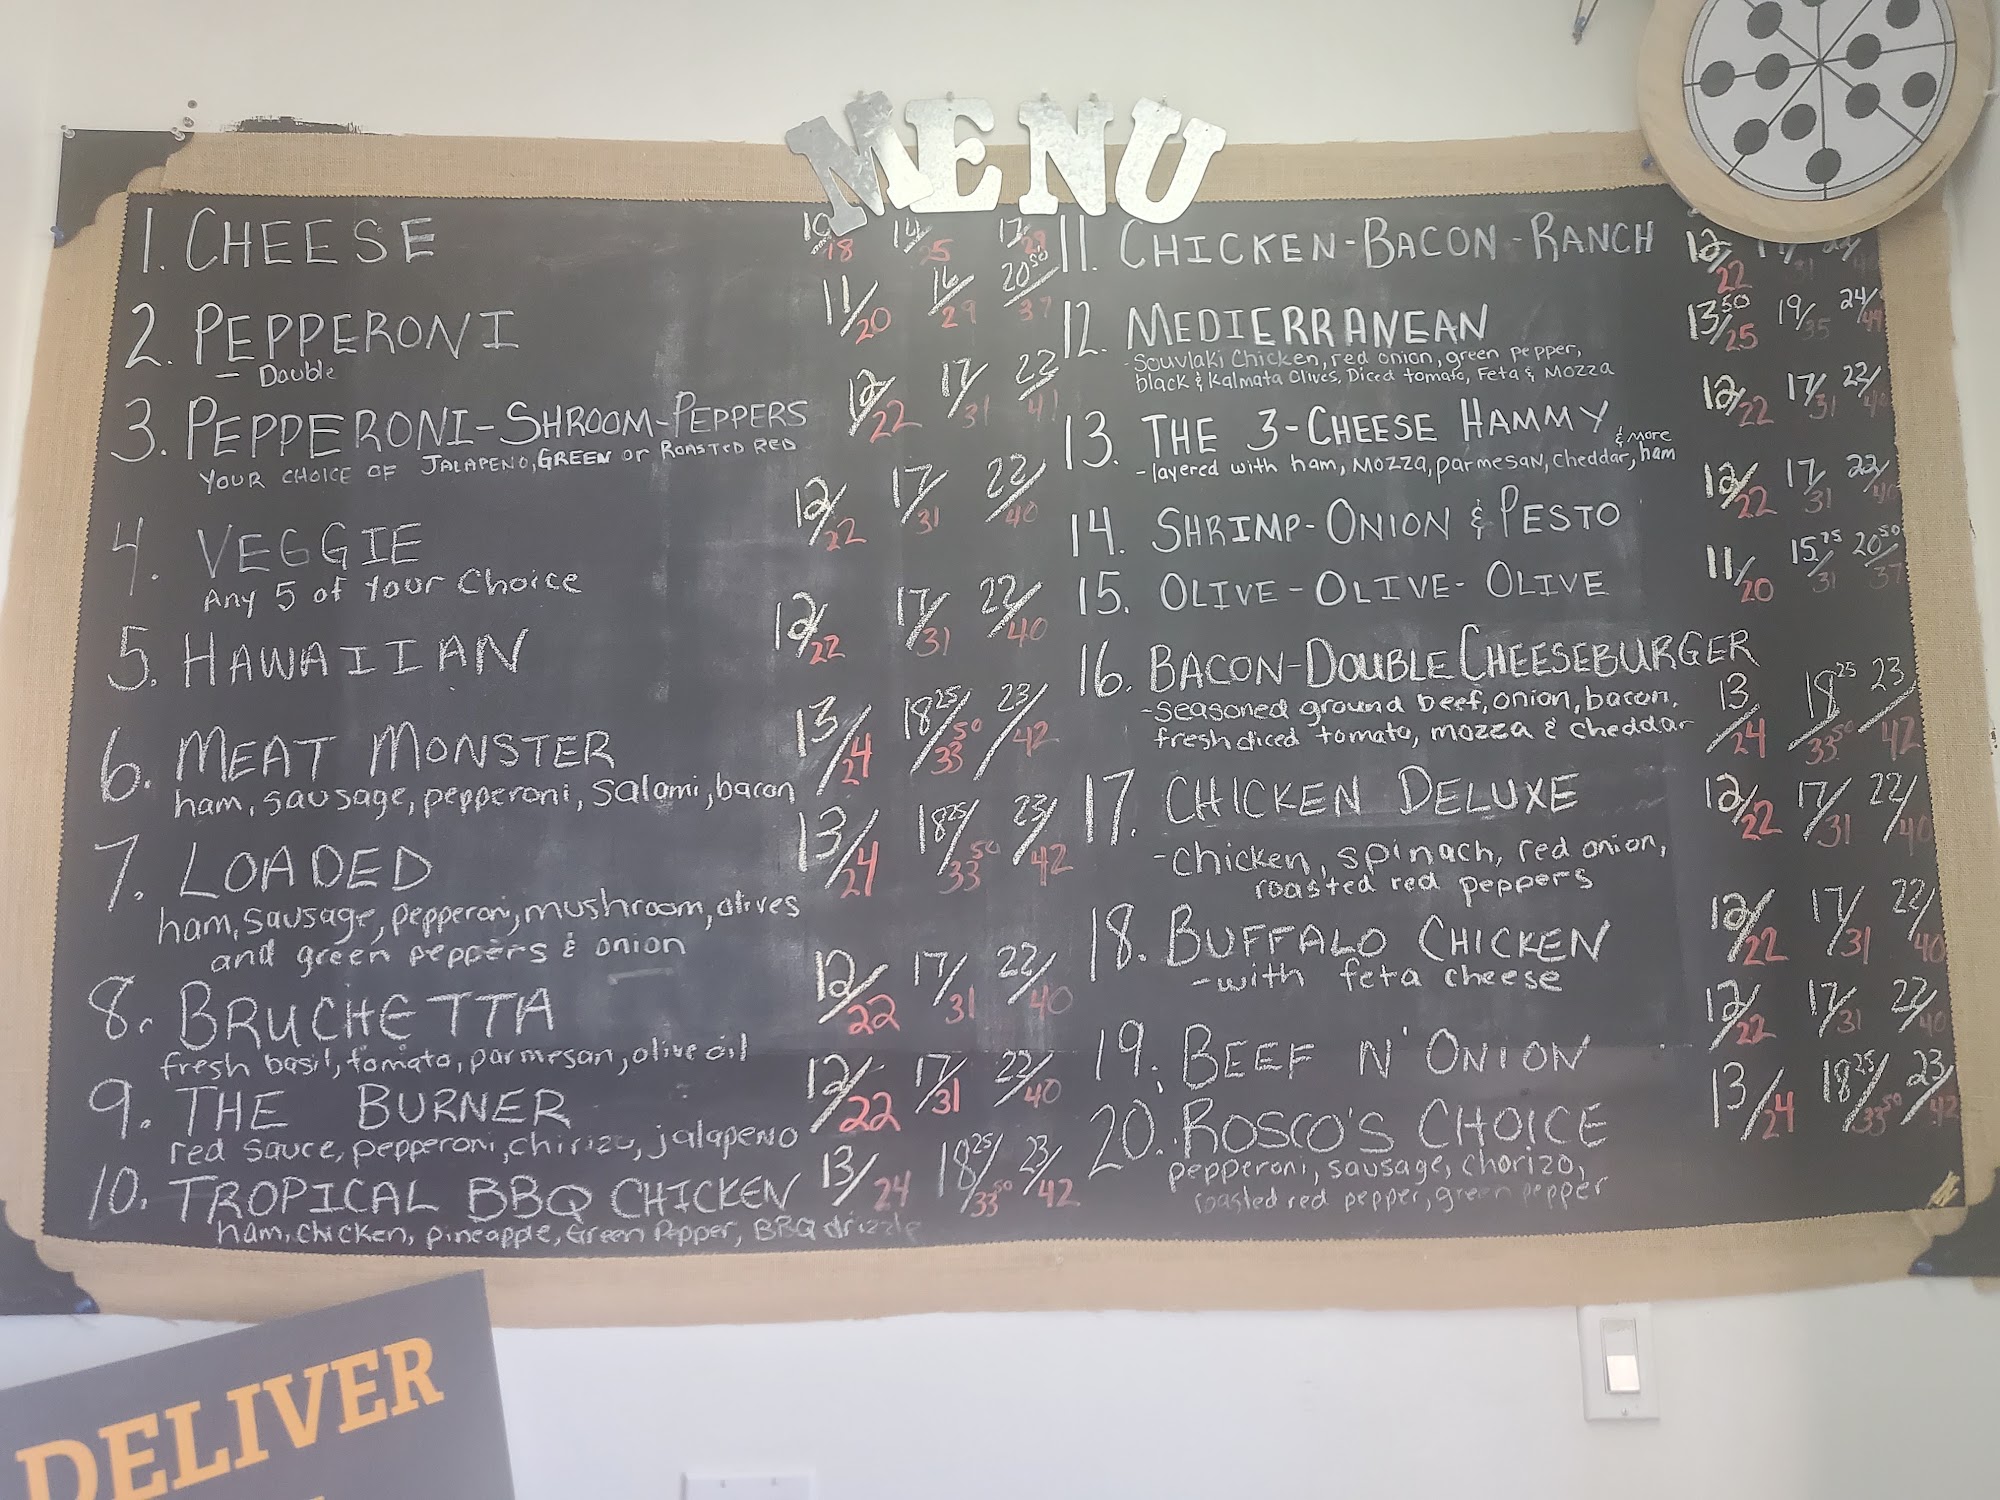 MENU
1. CHEESE 10/18 14/25 17/29
2. PEPPERONI 11/20 16/29 20⁵⁰/37
- Double
3. PEPPERONI-SHROOM-PEPPERS 12/22 17/31 /41
YOUR CHOICE OF JALAPENO, GREEN or ROASTED RED
4. VEGGIE 12/22 17/31 22/40
Any 5 of Your Choice
5. HAWAIIAN 12/22 17/31 22/40
6. MEAT MONSTER 13/24 18²⁵/33⁵⁰ 23/42
ham, sausage, pepperoni, salami, bacon
7. LOADED 13/24 18²⁵/33⁵⁰ 23/42
ham, sausage, pepperoni, mushroom, olives
and green peppers & onion
8. BRUCHETTA 12/22 17/31 22/40
fresh basil, tomato, parmesan, olive oil
9. THE BURNER 12/22 17/31 22/40
red sauce, pepperoni, chirizo, jalapeno
10. TROPICAL BBQ CHICKEN 13/24 18²⁵/33⁵⁰ 23/42
ham, chicken, pineapple, Green Pepper, BBQ drizzle
11. CHICKEN-BACON-RANCH 12/22 /31
12. MEDIERRANEAN 13⁵⁰/25 19/35 24/44
- Souvlaki Chicken, red onion, green pepper,
black & Kalmata Olives, Diced tomato, Feta & Mozza
13. THE 3-CHEESE HAMMY 12/22 17/31 22/40
- layered with ham, mozza, parmesan, cheddar, & more ham
14. SHRIMP-ONION & PESTO 12/22 17/31 22/40
15. OLIVE-OLIVE-OLIVE 11/20 15⁷⁵/31 20⁵⁰/37
16. BACON-DOUBLE CHEESEBURGER 13/24 18²⁵/33⁵⁰ 23/42
- seasoned ground beef, onion, bacon,
fresh diced tomato, mozza & cheddar
17. CHICKEN DELUXE 12/22 17/31 22/40
- chicken, spinach, red onion,
roasted red peppers
18. BUFFALO CHICKEN 12/22 17/31 22/40
- with feta cheese
19. BEEF N' ONION 12/22 17/31 22/40
20. ROSCO'S CHOICE 13/24 18²⁵/33⁵⁰ 23/42
pepperoni, sausage, chorizo,
roasted red pepper, green pepper
DELIVER